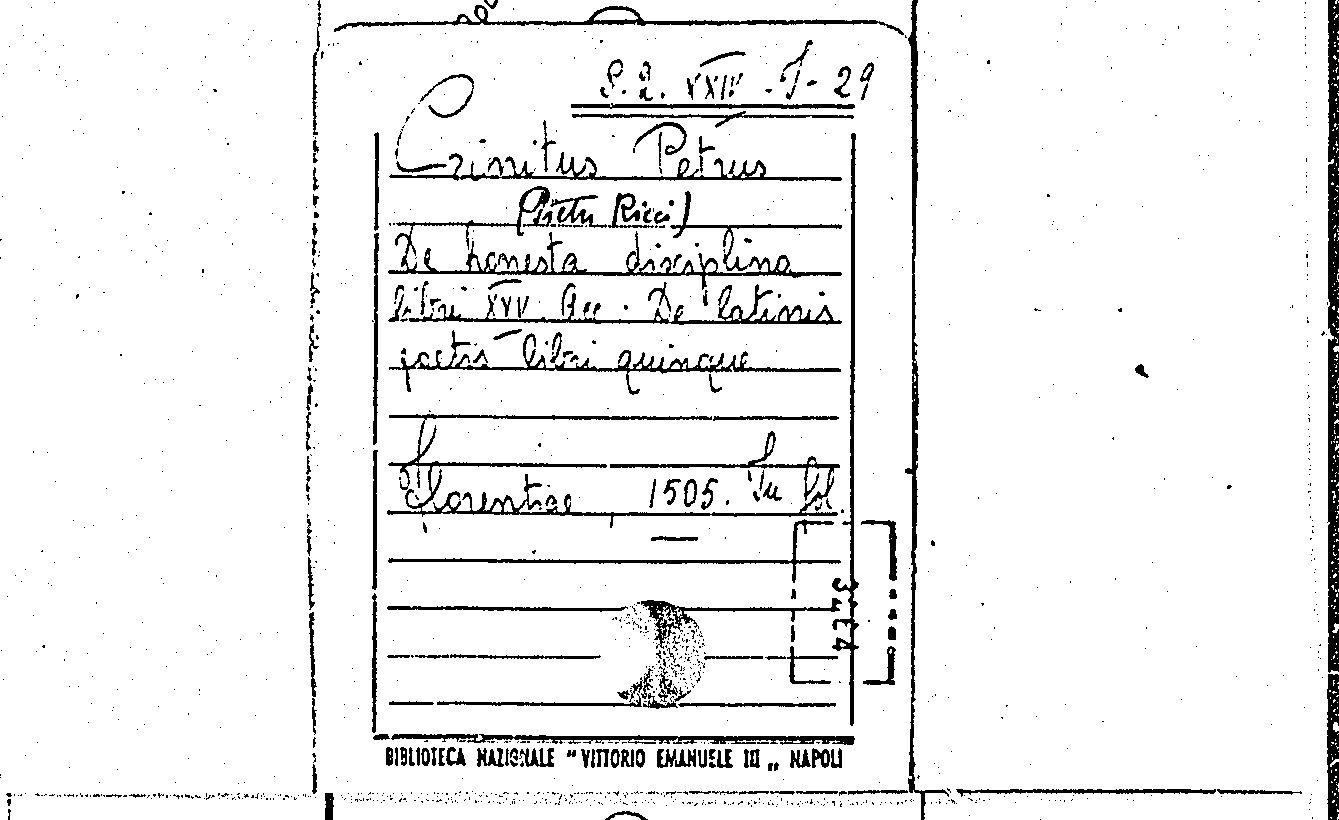 S.Q. XXIV - J - 29
Crinitus Petrus
(Pietro Ricci)
De honesta disciplina
libri XXV. Acc. De latinis
poetis libri quinque
Florentiae, 1505. In fol.
BIBLIOTECA NAZIONALE "VITTORIO EMANUELE III„ NAPOLI